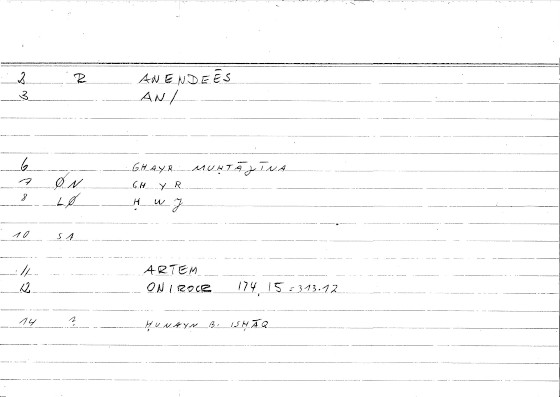 2 R ANENDEĒS
3 AN/
6 GHAYR MUḤTĀJĪNA
7 ØN GH Y R
8 LØ Ḥ W J
10 SA
11 ARTEM
12 ONIROCR 174, 15 = 313.12
14 ? ḤUNAYN B. ISḤĀQ